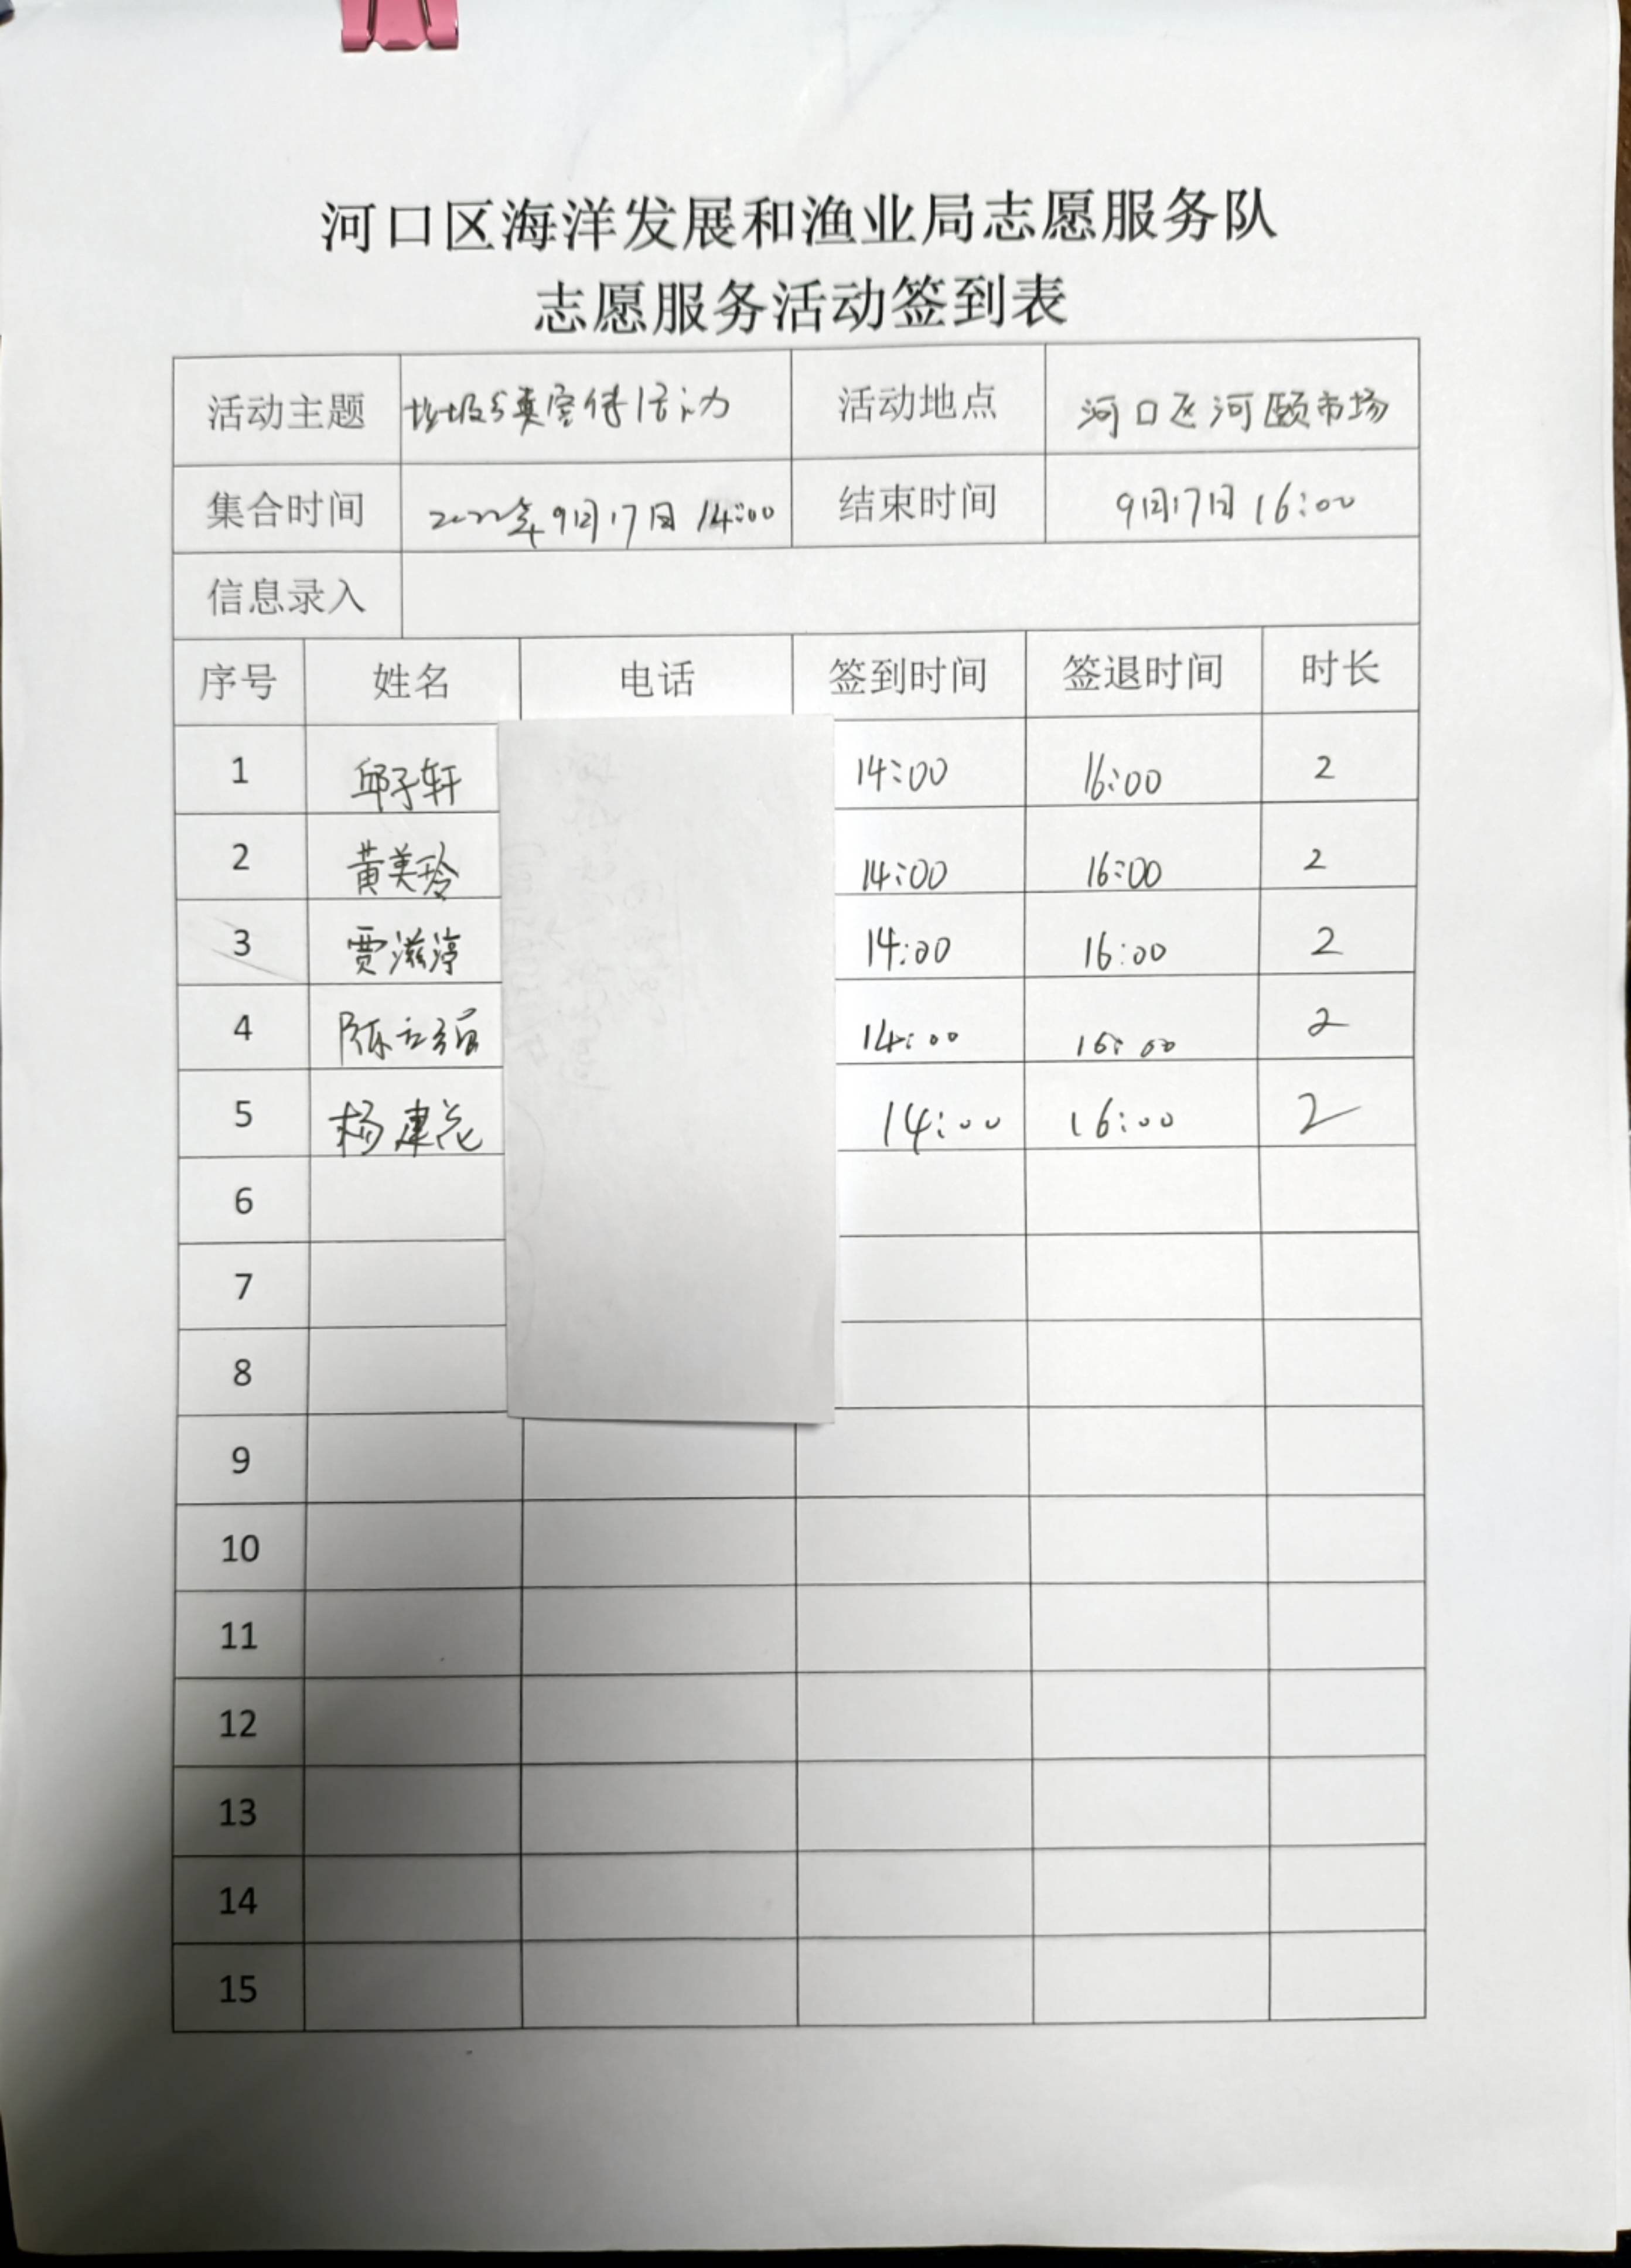 河口区海洋发展和渔业局志愿服务队
志愿服务活动签到表
活动主题 垃圾分类宣传活动 活动地点 河口区河颐市场
集合时间 2022年9月17日 14:00 结束时间 9月17日 16:00
信息录入
序号 姓名 电话 签到时间 签退时间 时长
1 邱子轩 14:00 16:00 2
2 黄美玲 14:00 16:00 2
3 贾滋渟 14:00 16:00 2
4 陈立 14:00 16:00 2
5 杨建花 14:00 16:00 2
6
7
8
9
10
11
12
13
14
15